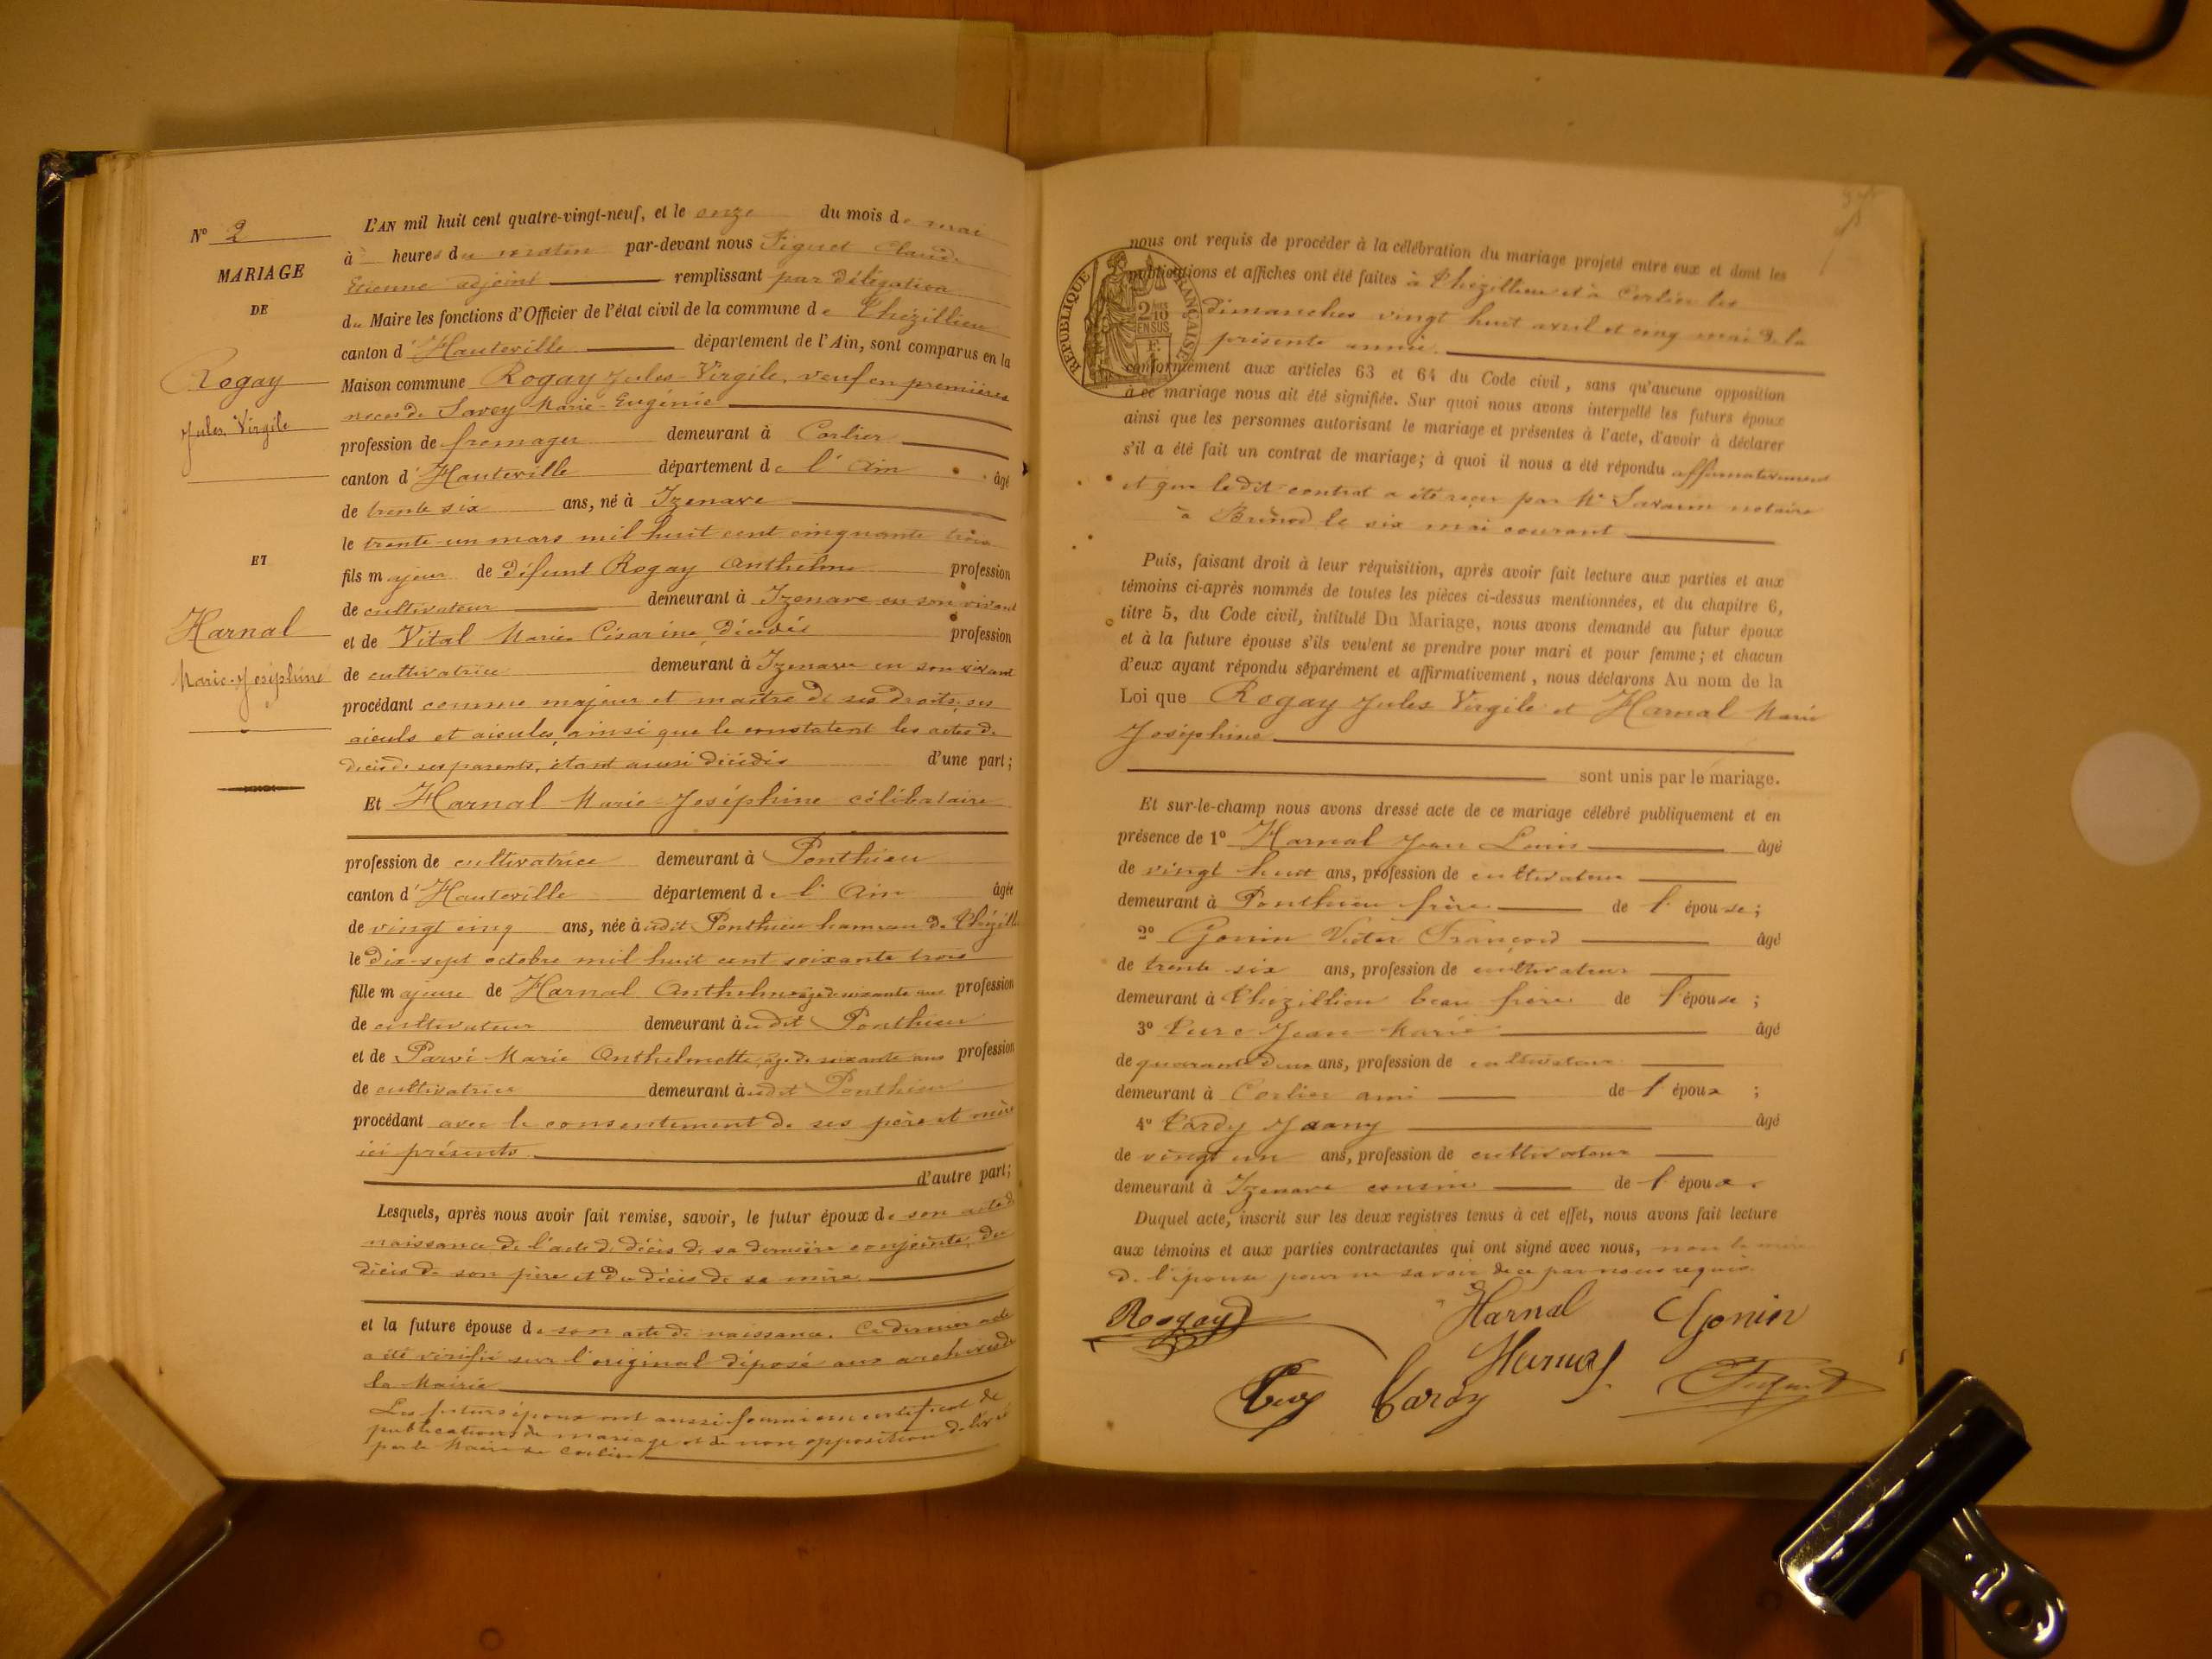 N° 2
MARIAGE
DE
Rogay
Jules Virgile
ET
Harnal
Marie-Joséphine
L'AN mil huit cent quatre-vingt-neuf, et le onze du mois de mai
à heures du matin par-devant nous Figuet Claude
Etienne adjoint remplissant par délégation
du Maire les fonctions d'Officier de l'état civil de la commune de Thézillieu
canton d'Hauteville département de l'Ain, sont comparus en la
Maison commune Rogay Jules-Virgile, veuf en premières
noces de Savey Marie-Eugénie
profession de fromager demeurant à Corlier
canton d'Hauteville département de l'Ain âgé
de trente six ans, né à Izenave
le trente-un mars mil huit cent cinquante trois
fils majeur de défunt Rogay Anthelme profession
de cultivateur demeurant à Izenave en son vivant
et de Vital Marie Césarine, décédée profession
de cultivatrice demeurant à Izenave en son vivant
procédant comme majeur et maître de ses droits, ses
aïeuls et aïeules, ainsi que le constatent les actes de
décès de ses parents, étant aussi décédés d'une part;
Et Harnal Marie-Joséphine célibataire
profession de cultivatrice demeurant à Ponthieu
canton d'Hauteville département de l'Ain âgée
de vingt cinq ans, née audit Ponthieu hameau de
le dix-sept octobre mil huit cent soixante trois
fille majeure de Harnal Anthelme âgé de soixante ans profession
de cultivateur demeurant audit Ponthieu
et de Marie Anthelmette, âgée de soixante ans profession
de cultivatrice demeurant audit Ponthieu
procédant avec le consentement de ses père et mère
ici présents
d'autre part;
Lesquels, après nous avoir fait remise, savoir, le futur époux de son acte de
naissance de l'acte de décès de sa dernière conjointe, du
décès de son père et du décès de sa mère
et la future épouse de son acte de naissance. Ce dernier acte
a été vérifié sur l'original déposé aux archives de
la Mairie
Les futurs époux ont aussi fourni un certificat de
publications de mariage et de non opposition délivré
par le Maire de Corlier
nous ont requis de procéder à la célébration du mariage projeté entre eux et dont les
publications et affiches ont été faites à Thézillieu et à Corlier les
dimanches vingt huit avril et cinq mai de la
présente année
RÉPUBLIQUE FRANÇAISE
2/10
EN SUS
conformément aux articles 63 et 64 du Code civil, sans qu'aucune opposition
à ce mariage nous ait été signifiée. Sur quoi nous avons interpellé les futurs époux
ainsi que les personnes autorisant le mariage et présentes à l'acte, d'avoir à déclarer
s'il a été fait un contrat de mariage; à quoi il nous a été répondu affirmativement
et que ledit contrat a été reçu par Me Savarin notaire
à Brénod le six mai courant
Puis, faisant droit à leur réquisition, après avoir fait lecture aux parties et aux
témoins ci-après nommés de toutes les pièces ci-dessus mentionnées, et du chapitre 6,
titre 5, du Code civil, intitulé Du Mariage, nous avons demandé au futur époux
et à la future épouse s'ils veulent se prendre pour mari et pour femme; et chacun
d'eux ayant répondu séparément et affirmativement, nous déclarons Au nom de la
Loi que Rogay Jules Virgile et Harnal Marie
Joséphine
sont unis par le mariage.
Et sur-le-champ nous avons dressé acte de ce mariage célébré publiquement et en
présence de 1° Harnal Jean Louis âgé
de vingt huit ans, profession de cultivateur
demeurant à Ponthieu frère de l'épouse;
2° Gonin Victor François âgé
de trente six ans, profession de cultivateur
demeurant à Thézillieu beau frère de l'épouse;
3° Jean Marie âgé
de quarante deux ans, profession de cultivateur
demeurant à Corlier ami de l'époux;
4° Tardy Joany âgé
de vingt un ans, profession de cultivateur
demeurant à Izenave cousin de l'époux.
Duquel acte, inscrit sur les deux registres tenus à cet effet, nous avons fait lecture
aux témoins et aux parties contractantes qui ont signé avec nous, non la mère
de l'épouse pour ne savoir de ce par nous requise.
Rogay Harnal Gonin
Tardy